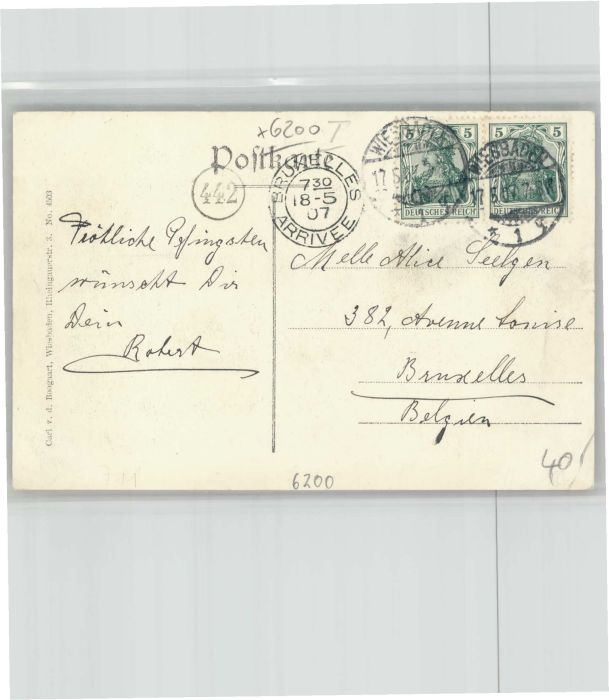 x6200 T
Postkarte
442
BRUXELLES
7 30
18-5
07
ARRIVEE
WIESBADEN
17.5
WIESBADEN
17.5.07.7-8
1
5 5
DEUTSCHES REICH
5 5
DEUTSCHES REICH
Fröhliche Pfingsten
wünscht Dir
Dein
Robert
Melle Alice Seelgen
382, Avenue Louise
Bruxelles
Belgien
Carl v. d. Boogaart, Wiesbaden, Rheingauerstr. 3. No. 4503
40
6200